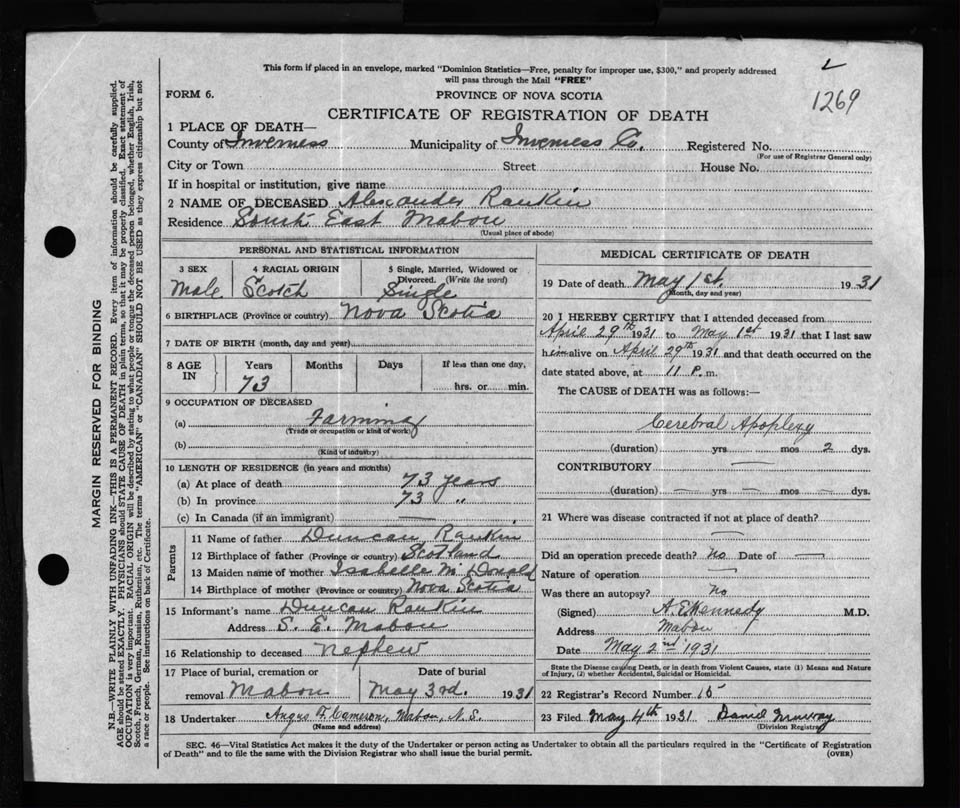 This form if placed in an envelope, marked "Dominion Statistics—Free, penalty for improper use, $300," and properly addressed
will pass through the Mail "FREE"
1269
FORM 6.
PROVINCE OF NOVA SCOTIA
CERTIFICATE OF REGISTRATION OF DEATH
1 PLACE OF DEATH—
County of Inverness Municipality of Inverness Co. Registered No.
(For use of Registrar General only)
City or Town Street House No.
If in hospital or institution, give name
2 NAME OF DECEASED Alexander Rankin
Residence South East Mabou
(Usual place of abode)
PERSONAL AND STATISTICAL INFORMATION
3 SEX 4 RACIAL ORIGIN 5 Single, Married, Widowed or
Divorced. (Write the word)
Male Scotch Single
6 BIRTHPLACE (Province or country) Nova Scotia
7 DATE OF BIRTH (month, day and year)
8 AGE IN Years Months Days If less than one day,
73 hrs. or min.
9 OCCUPATION OF DECEASED
(a) Farming
(Trade or occupation or kind of work)
(b)
(Kind of industry)
10 LENGTH OF RESIDENCE (in years and months)
(a) At place of death 73 years
(b) In province 73 "
(c) In Canada (if an immigrant) —
Parents
11 Name of father Duncan Rankin
12 Birthplace of father (Province or country) Scotland
13 Maiden name of mother Isabelle McDonald
14 Birthplace of mother (Province or country) Nova Scotia
15 Informant's name Duncan Rankin
Address S. E. Mabou
16 Relationship to deceased nephew
17 Place of burial, cremation or Date of burial
removal Mabou May 3rd. 1931
18 Undertaker Angus F. Cameron, Mabou, N.S.
(Name and address)
MEDICAL CERTIFICATE OF DEATH
19 Date of death May 1st. 1931
(Month, day and year)
20 I HEREBY CERTIFY that I attended deceased from
April 29th 1931 to May 1st 1931 that I last saw
him alive on April 29th 1931 and that death occurred on the
date stated above, at 11 P. m.
The CAUSE of DEATH was as follows:—
Cerebral Apoplexy
(duration) yrs — mos 2 dys.
CONTRIBUTORY —
(duration) — yrs — mos — dys.
21 Where was disease contracted if not at place of death?
—
Did an operation precede death? No Date of —
Nature of operation —
Was there an autopsy? No
(Signed) A. E. Kennedy M.D.
Address Mabou
Date May 2nd 1931
State the Disease causing Death, or in death from Violent Causes, state (1) Means and Nature
of Injury, (2) whether Accidental, Suicidal or Homicidal.
22 Registrar's Record Number 15
23 Filed May 4th 1931 David Murray
(Division Registrar)
SEC. 46—Vital Statistics Act makes it the duty of the Undertaker or person acting as Undertaker to obtain all the particulars required in the "Certificate of Registration
of Death" and to file the same with the Division Registrar who shall issue the burial permit. (OVER)
MARGIN RESERVED FOR BINDING
N.B.—WRITE PLAINLY WITH UNFADING INK—THIS IS A PERMANENT RECORD. Every item of information should be carefully supplied.
AGE should be stated EXACTLY. PHYSICIANS should STATE CAUSE OF DEATH in plain terms, so that it may be properly classified. Exact statement of
OCCUPATION is very important. RACIAL ORIGIN will be described by stating to what people or tongue the deceased person belonged, whether English, Irish,
Scotch, French, German, Russian, Ruthenian, etc. The terms "AMERICAN" or "CANADIAN" SHOULD NOT BE USED as they express citizenship but not
a race or people. See instructions on back of Certificate.